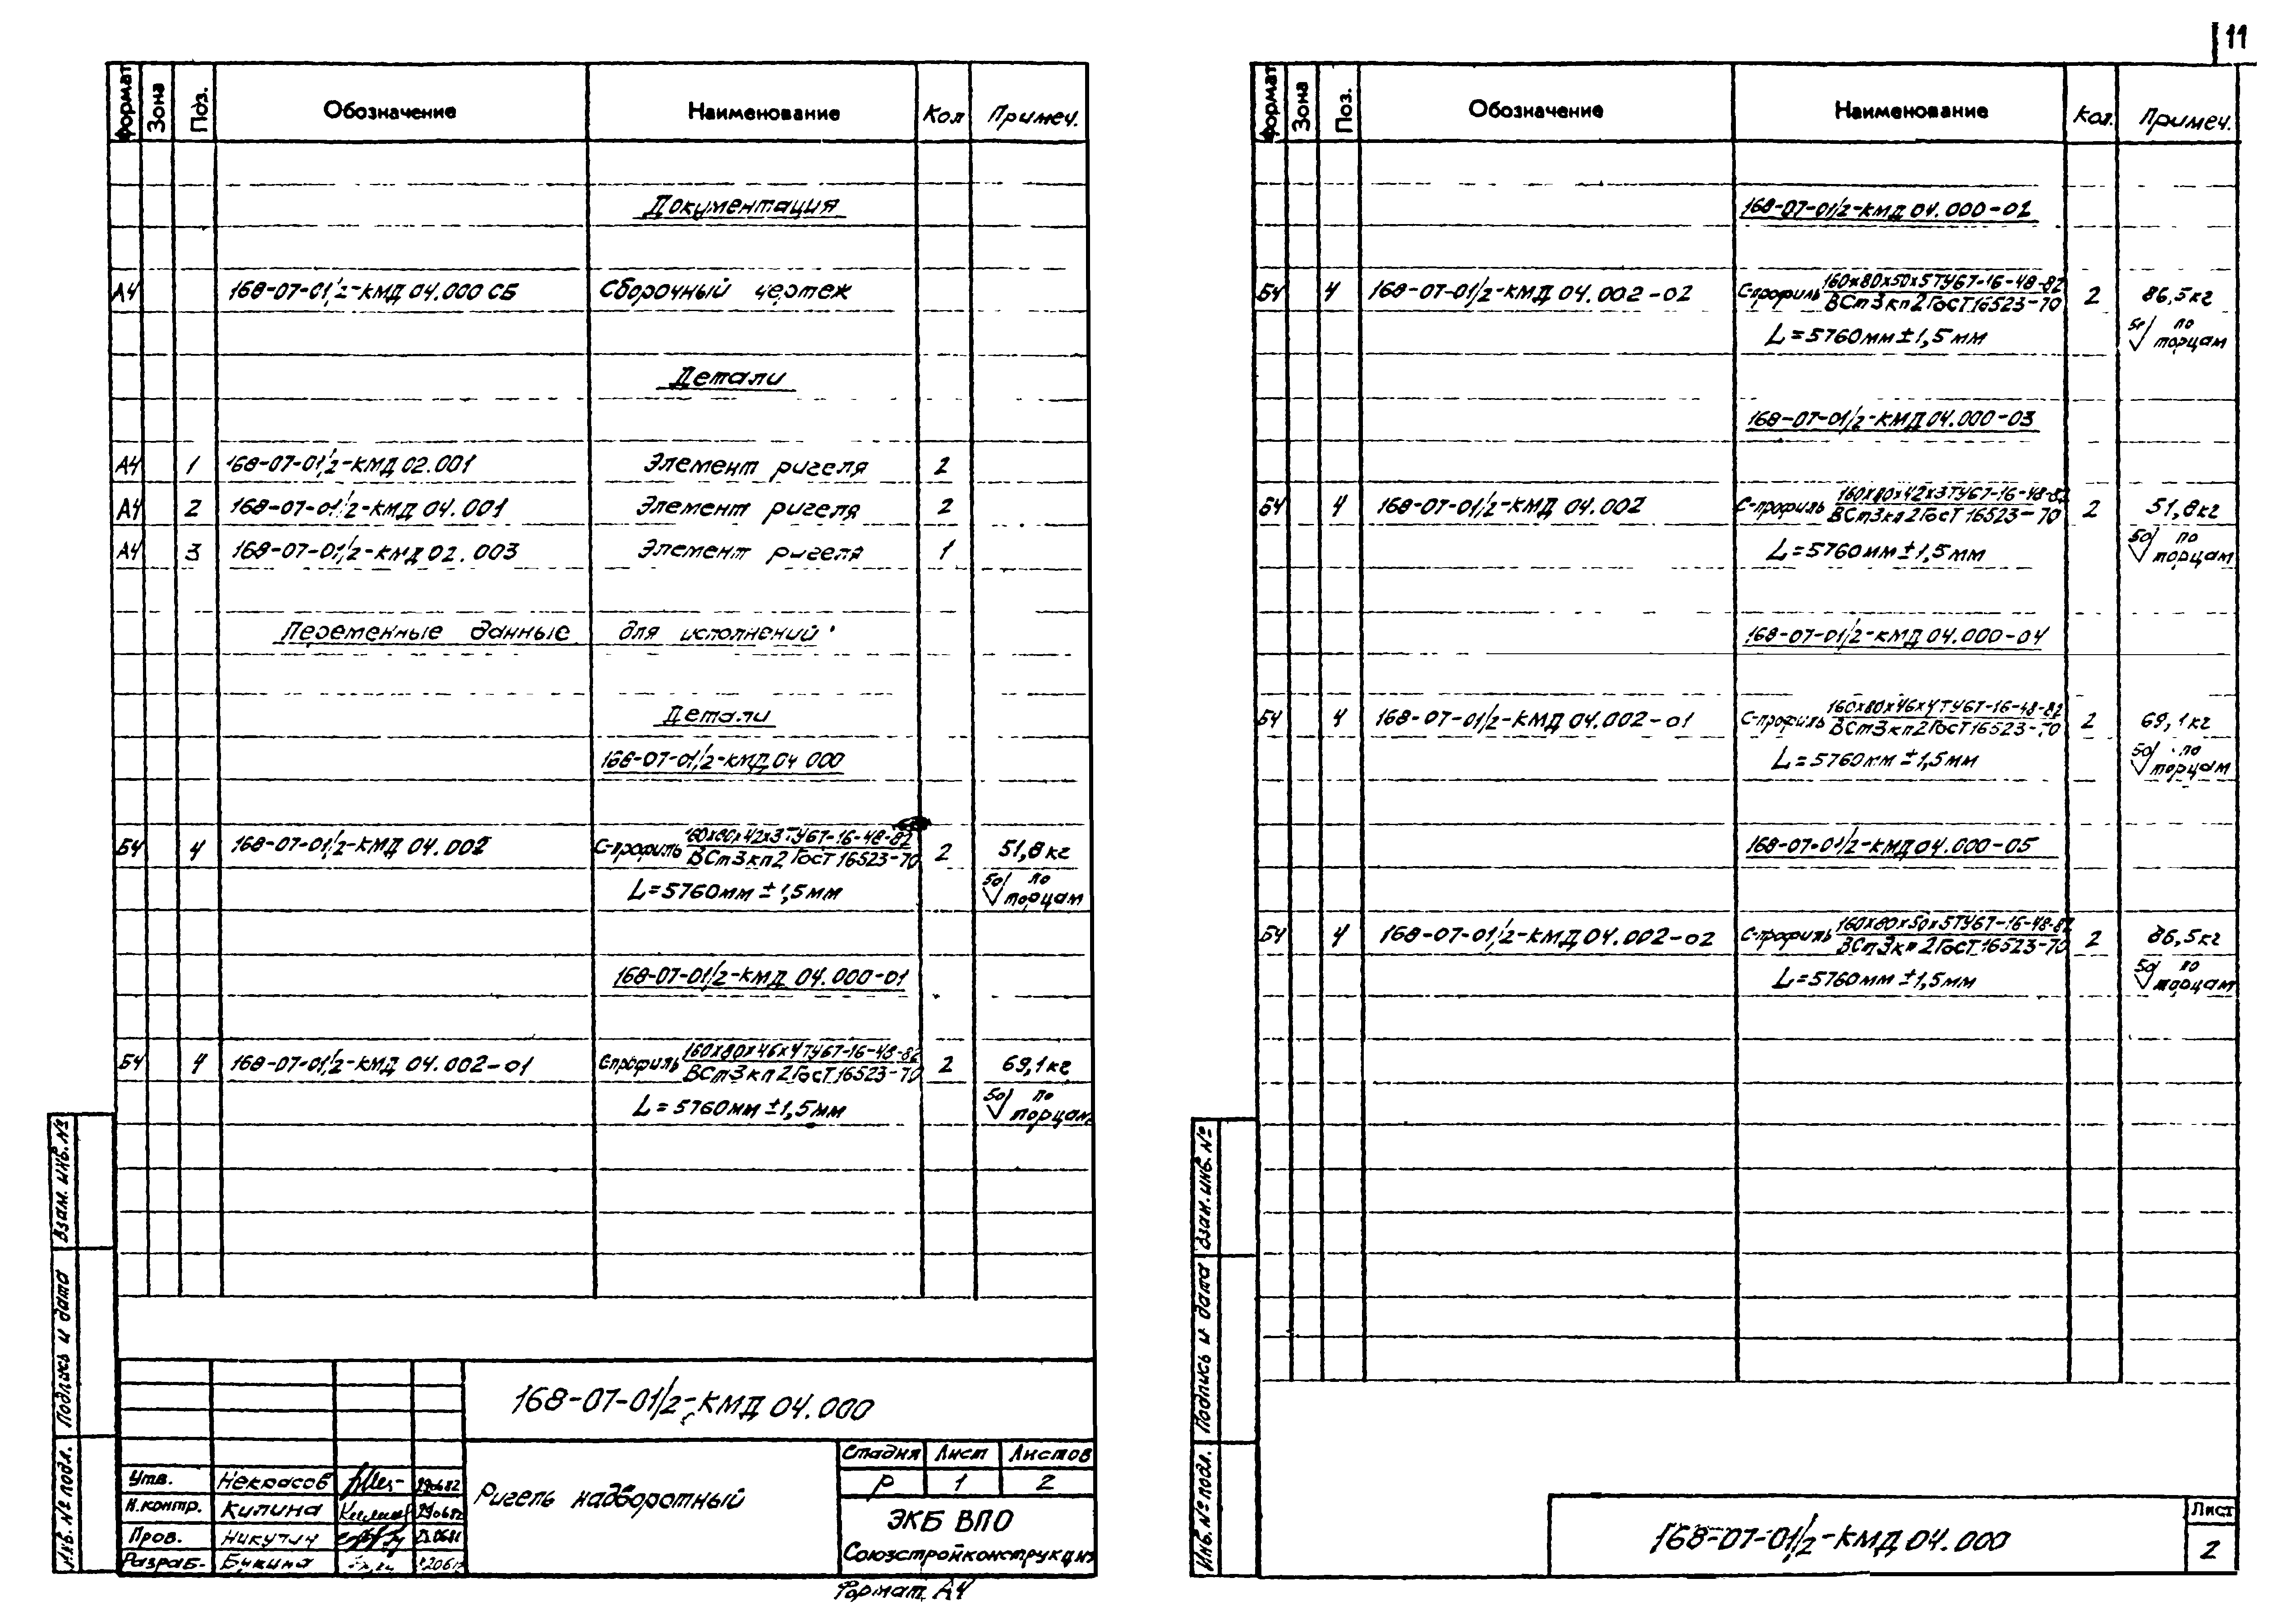 11
Формат Зона Поз. Обозначение Наименование Кол Примеч.
Документация
А4 168-07-01/2-КМД 04.000 СБ Сборочный чертеж
Детали
А4 1 168-07-01/2-КМД 02.001 Элемент ригеля 2
А4 2 168-07-01/2-КМД 04.001 Элемент ригеля 2
А4 3 168-07-01/2-КМД 02.003 Элемент ригеля 1
Переменные данные для исполнений
Детали
168-07-01/2-КМД 04 000
Б4 4 168-07-01/2-КМД 04.002 С-профиль 160х80х42х3 ТУ67-16-48-82 / ВСт3кп2 ГОСТ 16523-70 2 51,8кг
L=5760мм ±1,5мм 50 по торцам
168-07-01/2-КМД 04.000-01
Б4 4 168-07-01/2-КМД 04.002-01 С-профиль 160х80х46х4 ТУ67-16-48-82 / ВСт3кп2 ГОСТ 16523-70 2 69,1кг
L=5760мм ±1,5мм 50 по торцам
Взам. инв. №
Подпись и дата
Инв. № подл.
168-07-01/2-КМД 04.000
Утв. Некрасов 290682
Н.контр. Килина 290682
Пров. Никутин
Разраб. Букина
Ригель надворотный
Стадия Лист Листов
Р 1 2
ЭКБ ВПО
Союзстройконструкция
Формат А4
Формат Зона Поз. Обозначение Наименование Кол. Примеч.
168-07-01/2-КМД 04.000-02
Б4 4 168-07-01/2-КМД 04.002-02 С-профиль 160х80х50х5 ТУ67-16-48-82 / ВСт3кп2 ГОСТ 16523-70 2 86,5кг
L=5760мм ±1,5мм 50 по торцам
168-07-01/2-КМД 04.000-03
Б4 4 168-07-01/2-КМД 04.002 С-профиль 160х80х42х3 ТУ67-16-48-82 / ВСт3кп2 ГОСТ 16523-70 2 51,8кг
L=5760мм ±1,5мм 50 по торцам
168-07-01/2-КМД 04.000-04
Б4 4 168-07-01/2-КМД 04.002-01 С-профиль 160х80х46х4 ТУ67-16-48-82 / ВСт3кп2 ГОСТ 16523-70 2 69,1кг
L=5760мм ±1,5мм 50 по торцам
168-07-01/2-КМД 04.000-05
Б4 4 168-07-01/2-КМД 04.002-02 С-профиль 160х80х50х5 ТУ67-16-48-82 / ВСт3кп2 ГОСТ 16523-70 2 86,5кг
L=5760мм ±1,5мм 50 по торцам
Взам. инв. №
Подпись и дата
Инв. № подл.
168-07-01/2-КМД 04.000
Лист
2